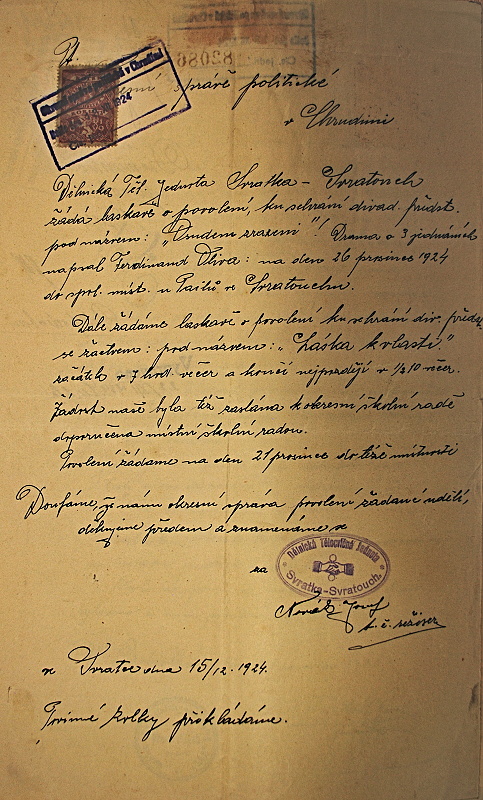 Pt.
správě politické
v Chrudimi
Dělnická Těl. Jednota Svratka – Svratouch
žádá laskavě o povolení, ku sehraní divad. předst.
pod názvem: „Osudem zrazeni"! Drama o 3 jednáních
napsal Ferdinand Oliva: na den 26 prosince 1924
do spol. míst. u Pailů ve Svratouchu.
Dále žádáme laskavě o povolení ku sehrání div. předst.
se žactvem: pod názvem: „Láska k vlasti"
začátek v 7 hod. večer a končí nejpozději v ½ 10 večer.
Žádost naše byla též zaslána k okresní školní radě
doporučena místní školní radou.
Povolení žádame na den 21 prosince do téže místnosti
Doufáme, že nám okresní správa povolení žádané udělí,
děkujeme předem a znamenáme se
Dělnická Tělocvičná Jednota
Svratka-Svratouch.
za
Novák Josef
t. č. režiser
ve Svratce dne 15/12. 1924.
Povinné kolky přikládáme.